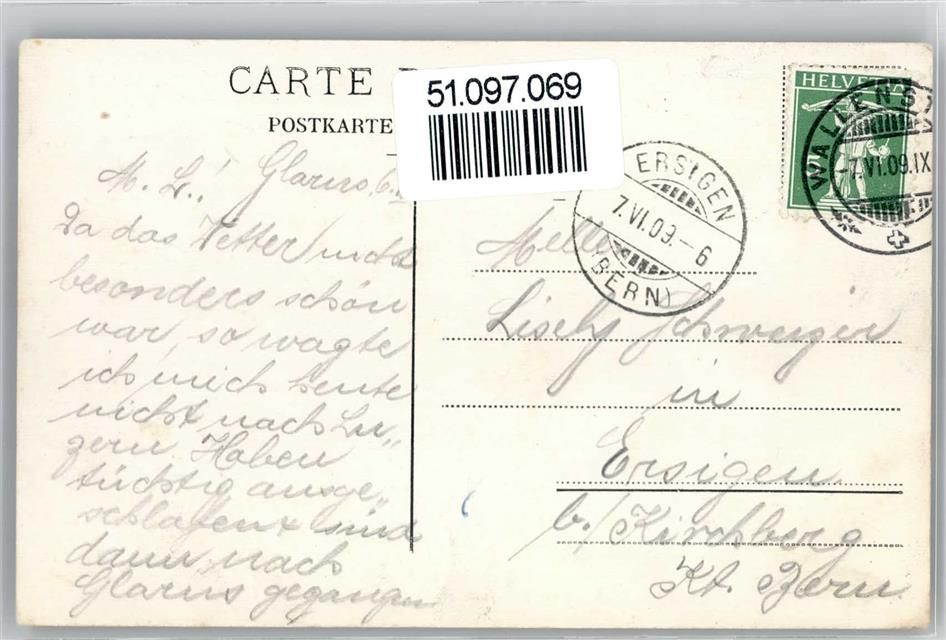 CARTE P
POSTKARTE
51.097.069
HELVETIA
WALLENST
7.VI.09.IX
ERSIGEN
7.VI.09.-6
(BERN)
M. L.! Glarus, 6.
Da das Wetter nicht
besonders schön
war, so wagte
ich mich heute
nicht nach Lu„
zern. Haben
tüchtig ausge„
schlafen & sind
dann nach
Glarus gegangen
Melle
Lisely Schweizer
in
Ersigen
b./Kirchberg
Kt. Bern